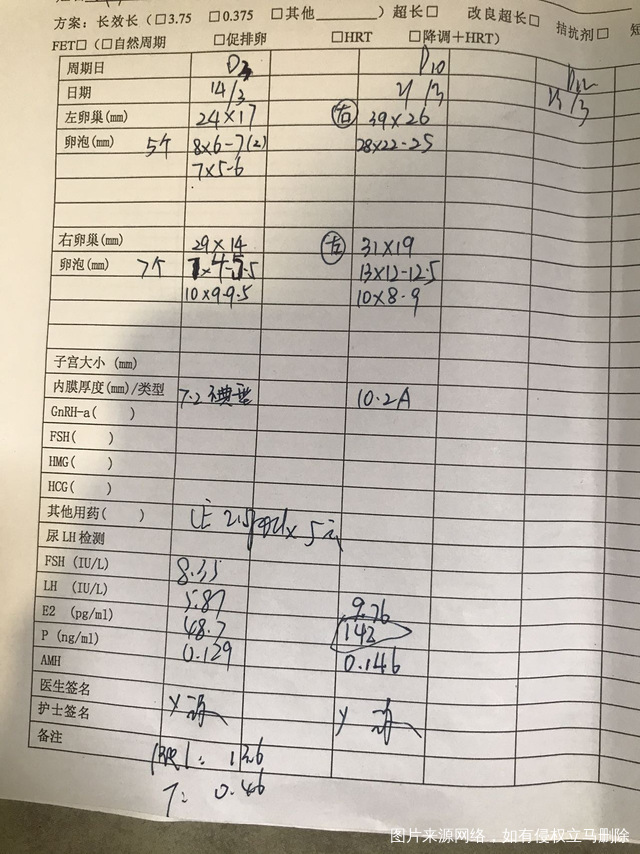 方案：长效长（□3.75 □0.375 □其他______）超长□ 改良超长□ 拮抗剂□ 短
FET□（□自然周期 □促排卵 □HRT □降调+HRT）
周期日 D10 D12
日期 14/3 21/3
左卵巢(mm) 24×17 右 39×26
卵泡(mm) 5个 8×6-7(2) 28×22-25
7×5-6
右卵巢(mm) 29×14 31×19
卵泡(mm) 7个 13×12-12.5
10×9-9.5 10×8-9
子宫大小 (mm)
内膜厚度(mm)/类型 7.2 10.2A
GnRH-a( )
FSH( )
HMG( )
HCG( )
其他用药( )
尿 LH 检测
FSH (IU/L) 8.35
LH (IU/L) 5.87 9.76
E2 (pg/ml) 48.7 142
P (ng/ml) 0.129 0.146
AMH
医生签名
护士签名
备注
PRL: 13.6
T: 0.46
图片来源网络，如有侵权立马删除